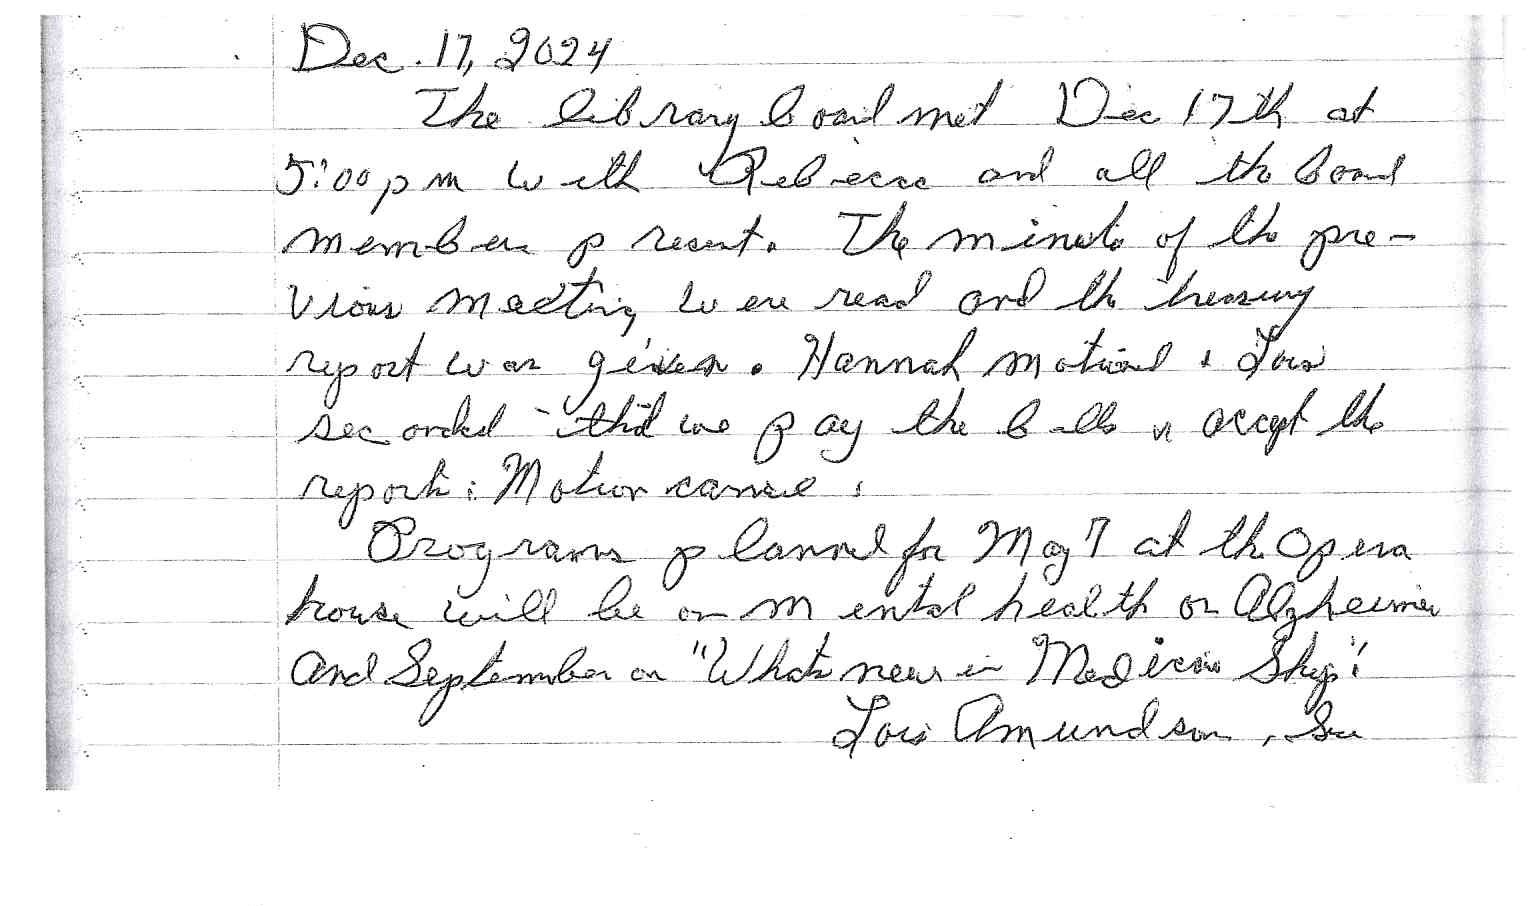 Dec. 17, 2024
The library board met Dec 17th at
5:00 pm with Rebecca and all the board
members present. The minute of the pre-
vious meeting were read and the treasury
report was given. Hannah motioned & Lois
seconded that we pay the bills & accept the
report. Motion carried.
Programs planned for May 7 at the Opera
house will be on mental health or Alzheimer
and September on "Whats new in
Lois Amundson, Sec